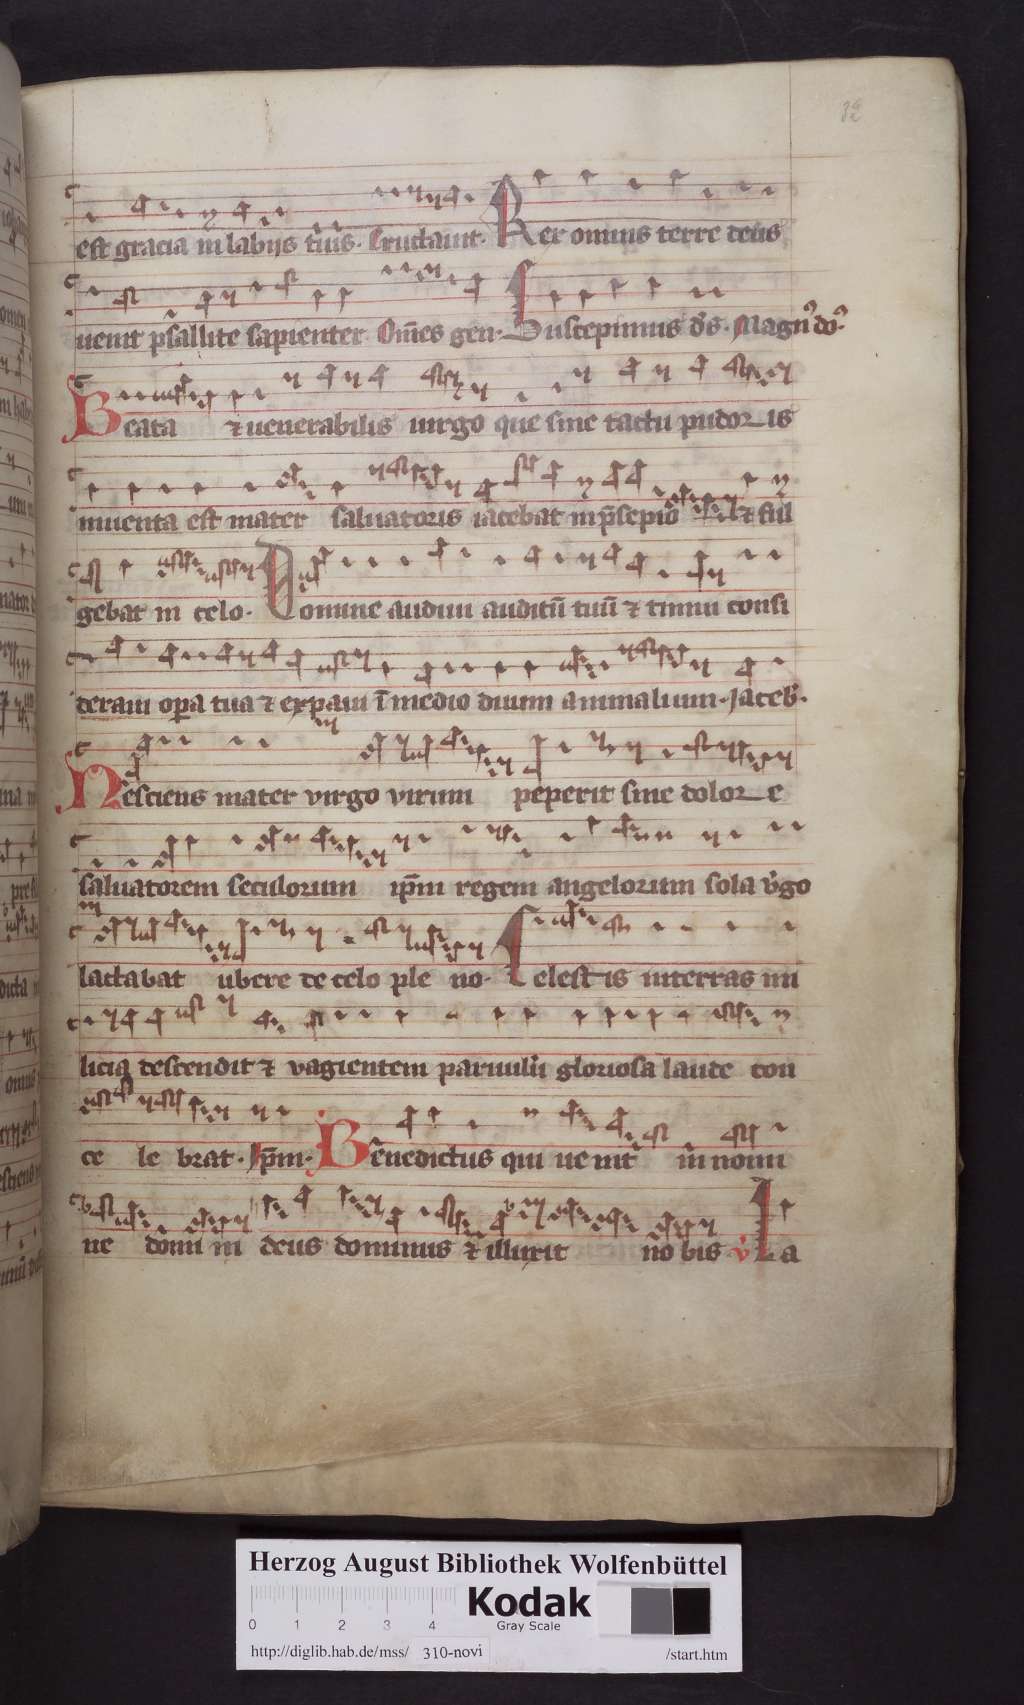 est gracia in labijs tuis. Eructauit. Rex omnis terre deus
uenit psallite sapienter Om̄es gen. Suscepimus d̄s. Magn᾽ do᾽.
Beata ⁊ uenerabilis uirgo que sine tactu pudoris
inuenta est mater saluatoris iacebat in p̄sepio ⁊ ful
gebat in celo. Domine audiui auditū tuū ⁊ timui consi
deraui opa tua ⁊ expaui ī medio duum animalium. Jaceb᾽.
Nesciens mater virgo virum peperit sine dolore
saluatorem seculorum ip̄m regem angelorum sola v᾽go
lactabat ubere de celo pleno. Celestis interras mi
licia descendit ⁊ vagientem paruulū gloriosa laude con
ce le brat. Ip̄m. Benedictus qui uenit in nomi
ne domini deus dominus ⁊ illuxit nobis v̊ La
Herzog August Bibliothek Wolfenbüttel
0 1 2 3 4
Kodak
Gray Scale
http://diglib.hab.de/mss/ 310-novi /start.htm